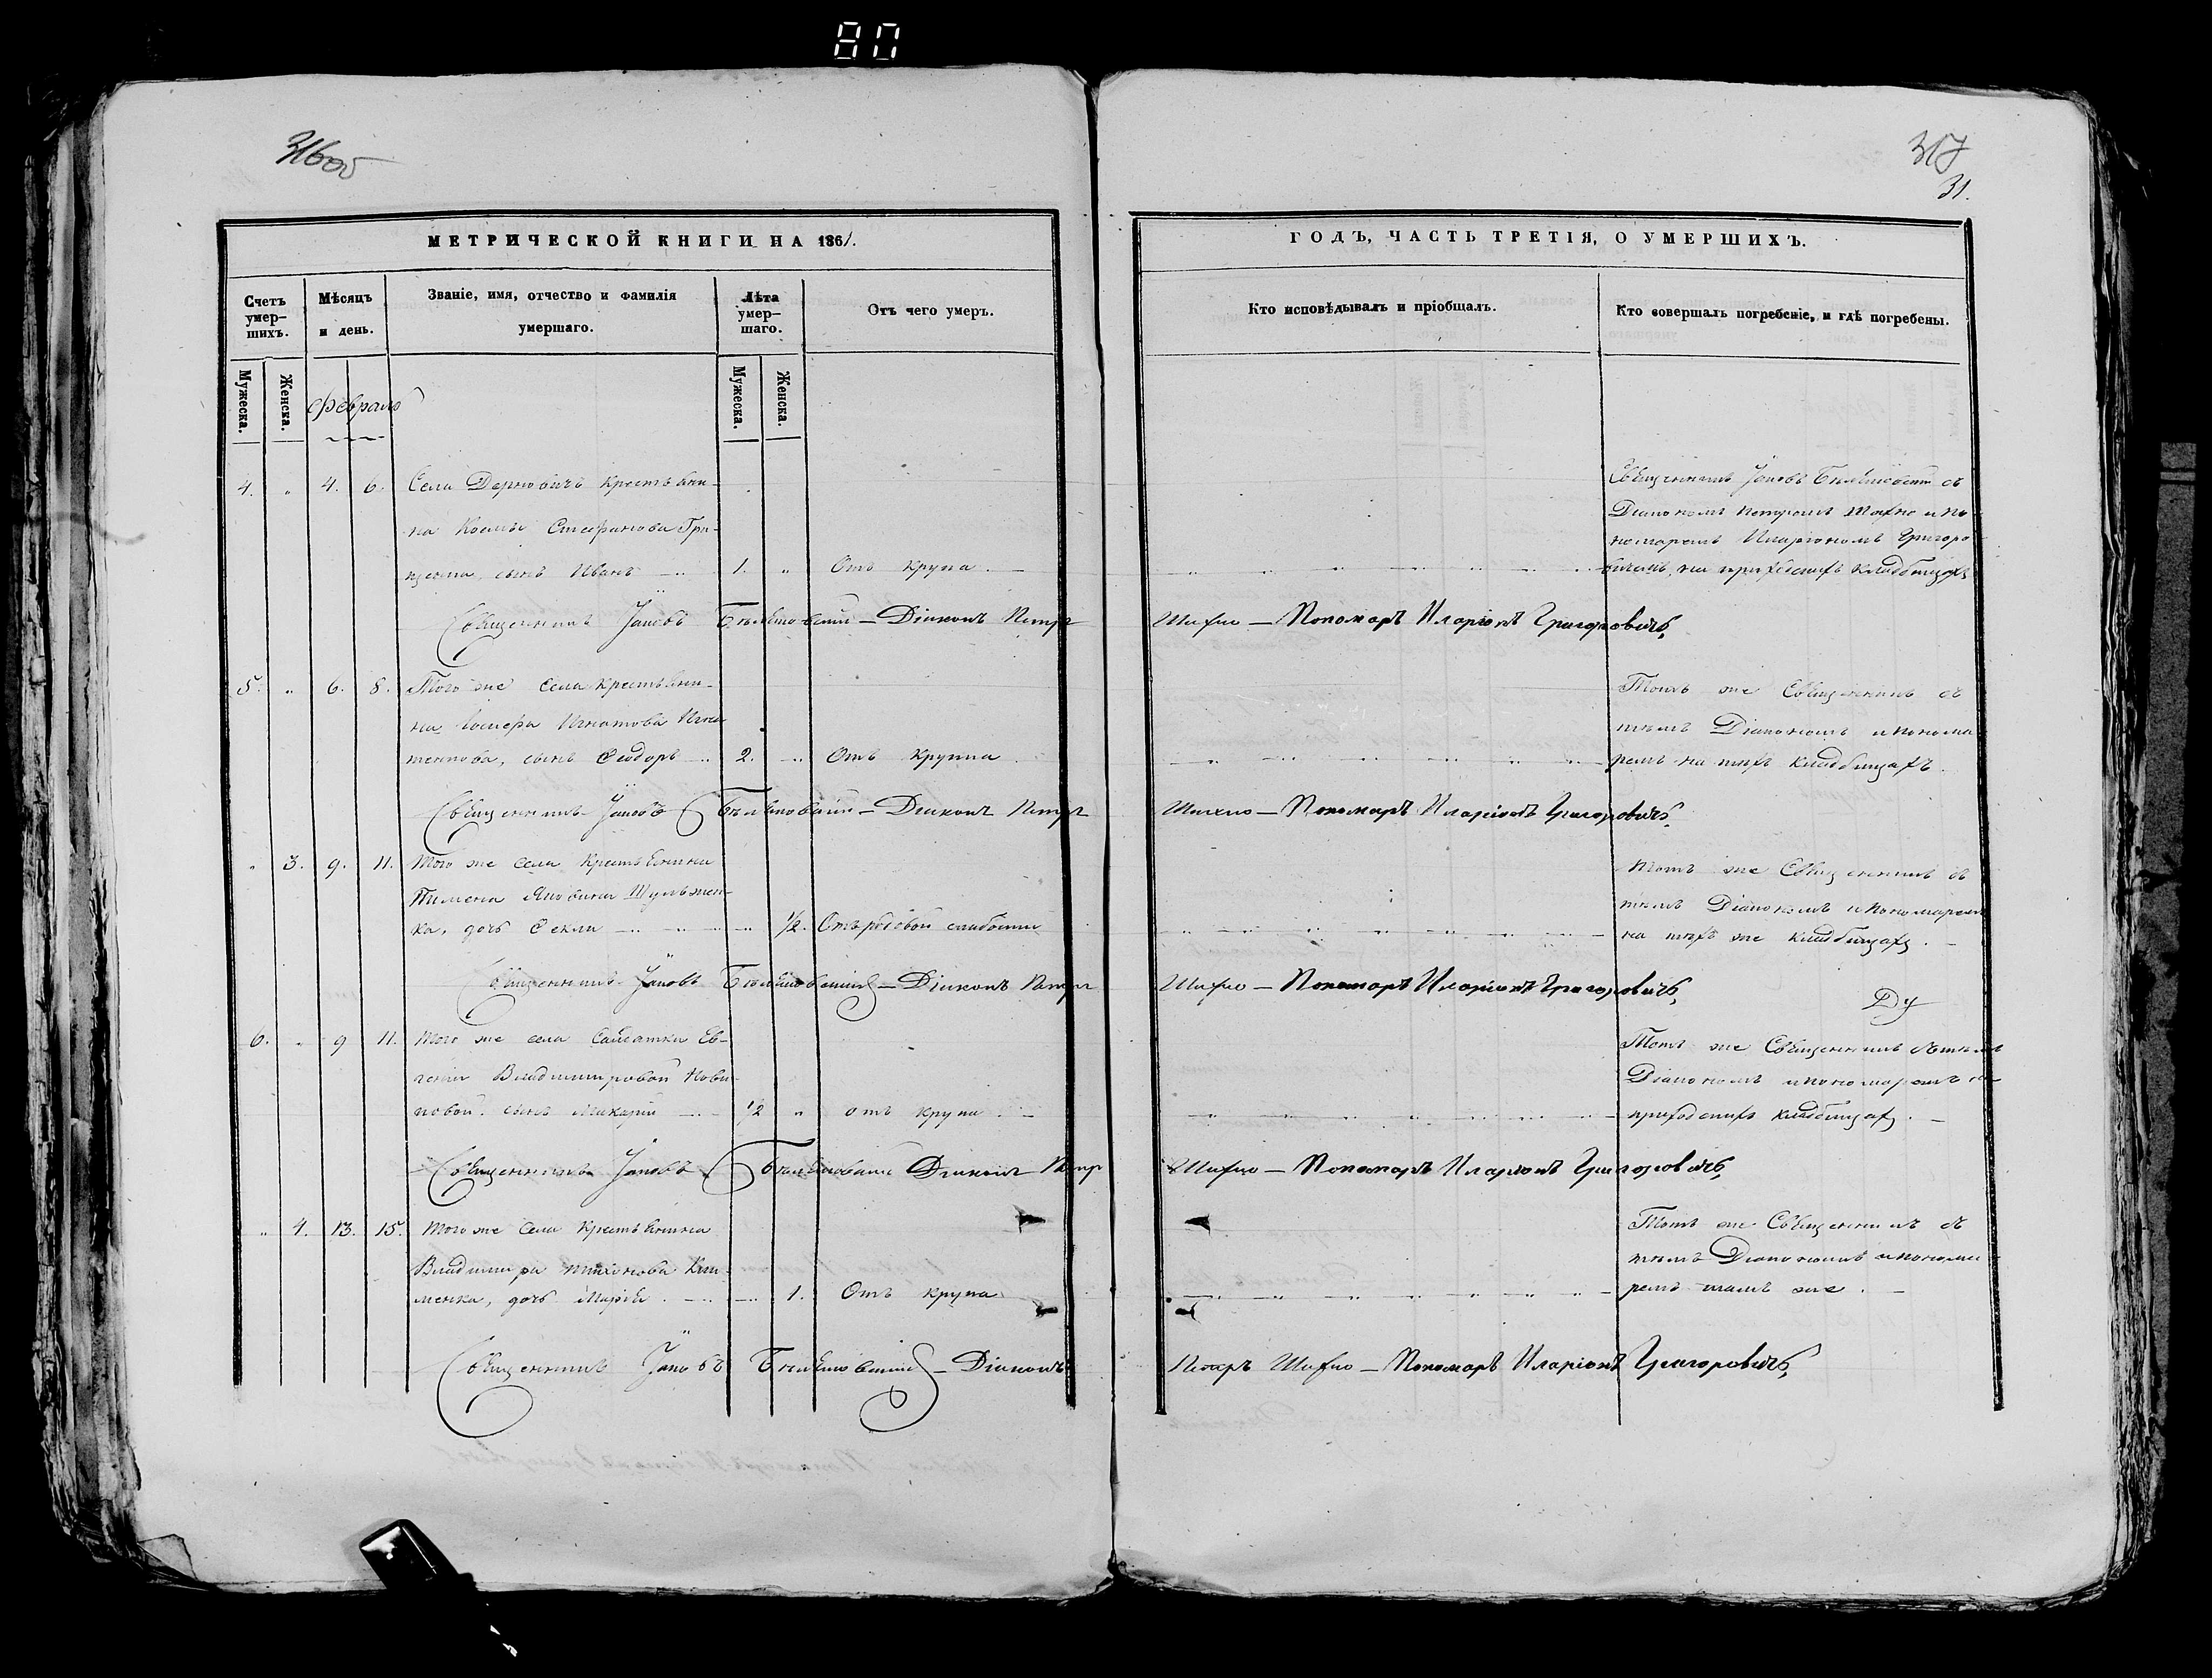 80
316об
317
31.
МЕТРИЧЕСКОЙ КНИГИ НА 1861.
ГОДЪ, ЧАСТЬ ТРЕТІЯ, О УМЕРШИХЪ.
Счетъ умер-шихъ.
Мѣсяцъ и день.
Званіе, имя, отчество и фамилія умершаго.
Лѣта умер-шаго.
Отъ чего умеръ.
Кто исповѣдывалъ и пріобщалъ.
Кто совершалъ погребеніе, и гдѣ погребены.
Мужеска.
Женска.
Мужеска.
Женска.
Февраль
4. " 4. 6. Села Дерновичъ крестьяни-
на Космы Стефанова
сынъ Иванъ 1. " Отъ крупа
Священникъ Іаковъ съ
Діакономъ Петромъ Махно и по-
номаремъ Иларіономъ Григоро-
вичемъ, на приходскихъ кладбищахъ
Священникъ Іаковъ — Діаконъ Петръ
Махно — Пономарь Иларіонъ Григоровичъ
5. " 6. 8. Того же села крестьяни-
на Игнатова
сынъ Феодоръ 2. " Отъ круппа
Тотъ же Священникъ съ
тѣмъ Діакономъ и понома-
ремъ на тѣхъ кладбищахъ
Священникъ Іаковъ — Діаконъ Петръ
Махно — Пономарь Иларіонъ Григоровичъ
" 3. 9. 11. Того же села крестьянина
Пимена Яковина Шульжен-
ка, дочь Фекла " 1/2. Отъ родовой слабости
Тотъ же Священникъ съ
тѣмъ Діакономъ и пономаремъ
на тѣхъ же кладбищахъ.
Священникъ Іаковъ — Діаконъ Петръ
Махно — Пономарь Иларіонъ Григоровичъ
6. " 9 11. Того же села Солдатки Ев-
геніи Владимировой
сынъ Макарій 1/2 " отъ крупа
Тотъ же Священникъ съ тѣмъ
Діакономъ и пономаремъ на
приходскихъ кладбищахъ.
Священникъ Іаковъ Діаконъ Петръ
Махно — Пономарь Иларіонъ Григоровичъ
" 4. 13. 15. Того же села крестьянина
Владимира Тихонова Кли-
менка, дочь Марія " 1. Отъ крупа
Тотъ же Священникъ съ
тѣмъ Діакономъ и понома-
ремъ тамъ же.
Священникъ Іаковъ — Діаконъ
Петръ Махно — Пономарь Иларіонъ Григоровичъ